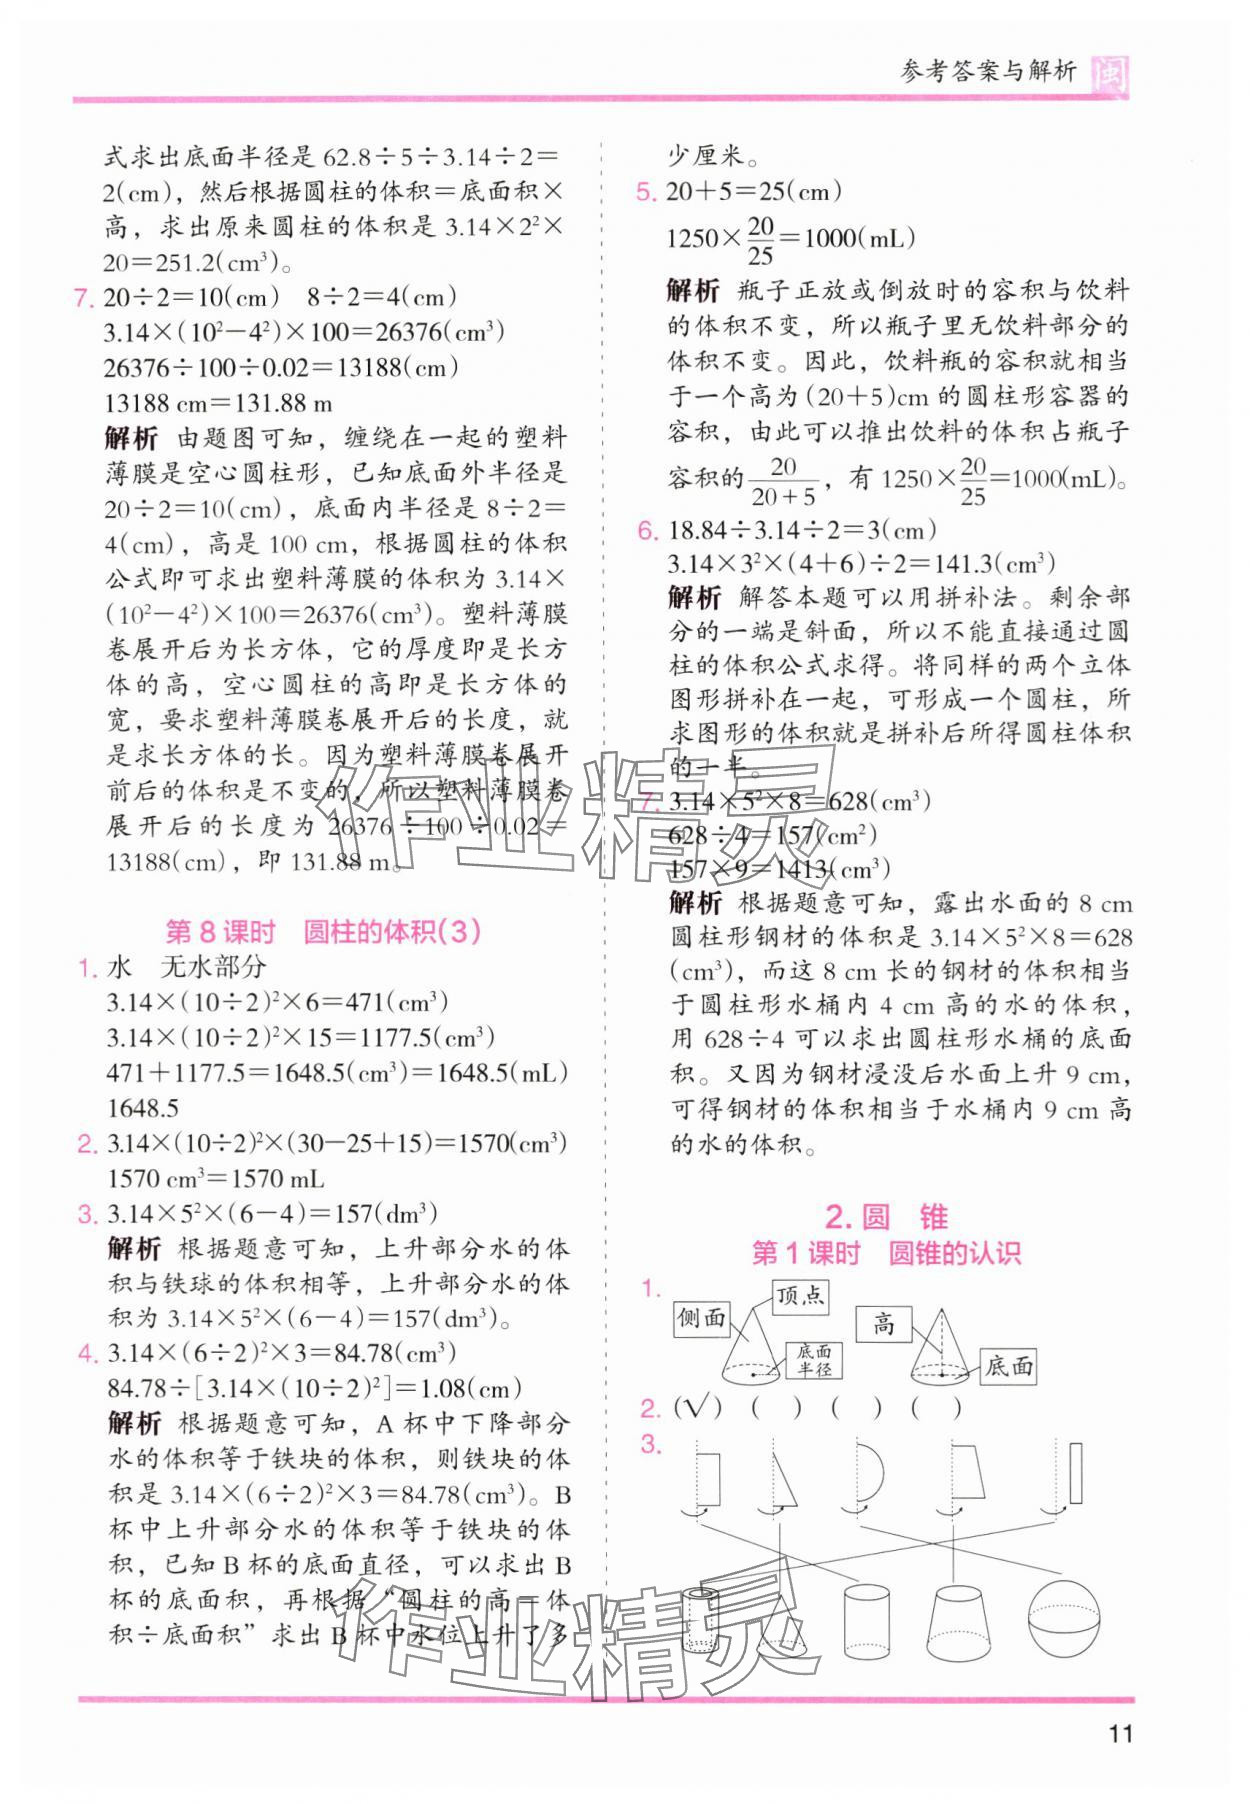 参考答案与解析 闽
式求出底面半径是 62.8÷5÷3.14÷2=
2(cm)，然后根据圆柱的体积=底面积×
高，求出原来圆柱的体积是 3.14×2²×
20=251.2(cm³)。
7. 20÷2=10(cm)  8÷2=4(cm)
3.14×(10²-4²)×100=26376(cm³)
26376÷100÷0.02=13188(cm)
13188 cm=131.88 m
解析 由题图可知，缠绕在一起的塑料
薄膜是空心圆柱形，已知底面外半径是
20÷2=10(cm)，底面内半径是 8÷2=
4(cm)，高是 100 cm，根据圆柱的体积
公式即可求出塑料薄膜的体积为 3.14×
(10²-4²)×100=26376(cm³)。塑料薄膜
卷展开后为长方体，它的厚度即是长方
体的高，空心圆柱的高即是长方体的
宽，要求塑料薄膜卷展开后的长度，就
是求长方体的长。因为塑料薄膜卷展开
前后的体积是不变的，所以塑料薄膜卷
展开后的长度为 26376÷100÷0.02=
13188(cm)，即 131.88 m。
第 8 课时 圆柱的体积(3)
1. 水 无水部分
3.14×(10÷2)²×6=471(cm³)
3.14×(10÷2)²×15=1177.5(cm³)
471+1177.5=1648.5(cm³)=1648.5(mL)
1648.5
2. 3.14×(10÷2)²×(30-25+15)=1570(cm³)
1570 cm³=1570 mL
3. 3.14×5²×(6-4)=157(dm³)
解析 根据题意可知，上升部分水的体
积与铁球的体积相等，上升部分水的体
积为 3.14×5²×(6-4)=157(dm³)。
4. 3.14×(6÷2)²×3=84.78(cm³)
84.78÷[3.14×(10÷2)²]=1.08(cm)
解析 根据题意可知，A 杯中下降部分
水的体积等于铁块的体积，则铁块的体
积是 3.14×(6÷2)²×3=84.78(cm³)。B
杯中上升部分水的体积等于铁块的体
积，已知 B 杯的底面直径，可以求出 B
杯的底面积，再根据“圆柱的高=体
积÷底面积”求出 B 杯中水位上升了多
少厘米。
5. 20+5=25(cm)
1250×20/25=1000(mL)
解析 瓶子正放或倒放时的容积与饮料
的体积不变，所以瓶子里无饮料部分的
体积不变。因此，饮料瓶的容积就相当
于一个高为(20+5)cm 的圆柱形容器的
容积，由此可以推出饮料的体积占瓶子
容积的 20/(20+5)，有 1250×20/25=1000(mL)。
6. 18.84÷3.14÷2=3(cm)
3.14×3²×(4+6)÷2=141.3(cm³)
解析 解答本题可以用拼补法。剩余部
分的一端是斜面，所以不能直接通过圆
柱的体积公式求得。将同样的两个立体
图形拼补在一起，可形成一个圆柱，所
求图形的体积就是拼补后所得圆柱体积
的一半。
7. 3.14×5²×8=628(cm³)
628÷4=157(cm²)
157×9=1413(cm³)
解析 根据题意可知，露出水面的 8 cm
圆柱形钢材的体积是 3.14×5²×8=628
(cm³)，而这 8 cm 长的钢材的体积相当
于圆柱形水桶内 4 cm 高的水的体积，
用 628÷4 可以求出圆柱形水桶的底面
积。又因为钢材浸没后水面上升 9 cm，
可得钢材的体积相当于水桶内 9 cm 高
的水的体积。
2. 圆 锥
第 1 课时 圆锥的认识
1. 侧面 顶点 底面半径 高 底面
2. (√) ( ) ( ) ( )
3.
11
作业精灵
作业精灵